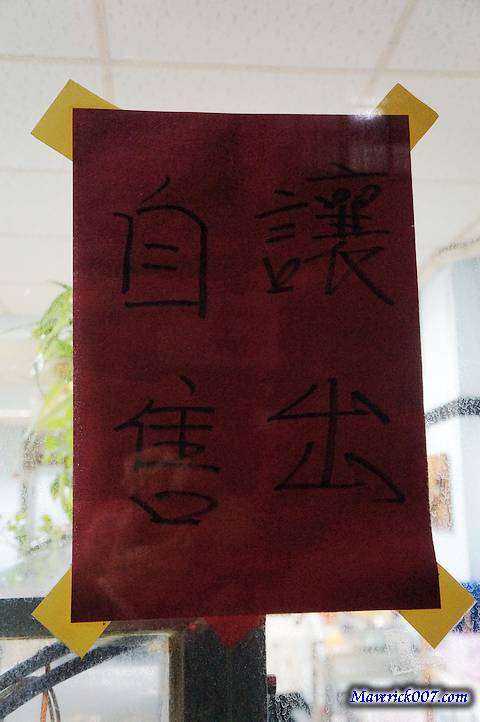 讓出
自售
Maverick007.com